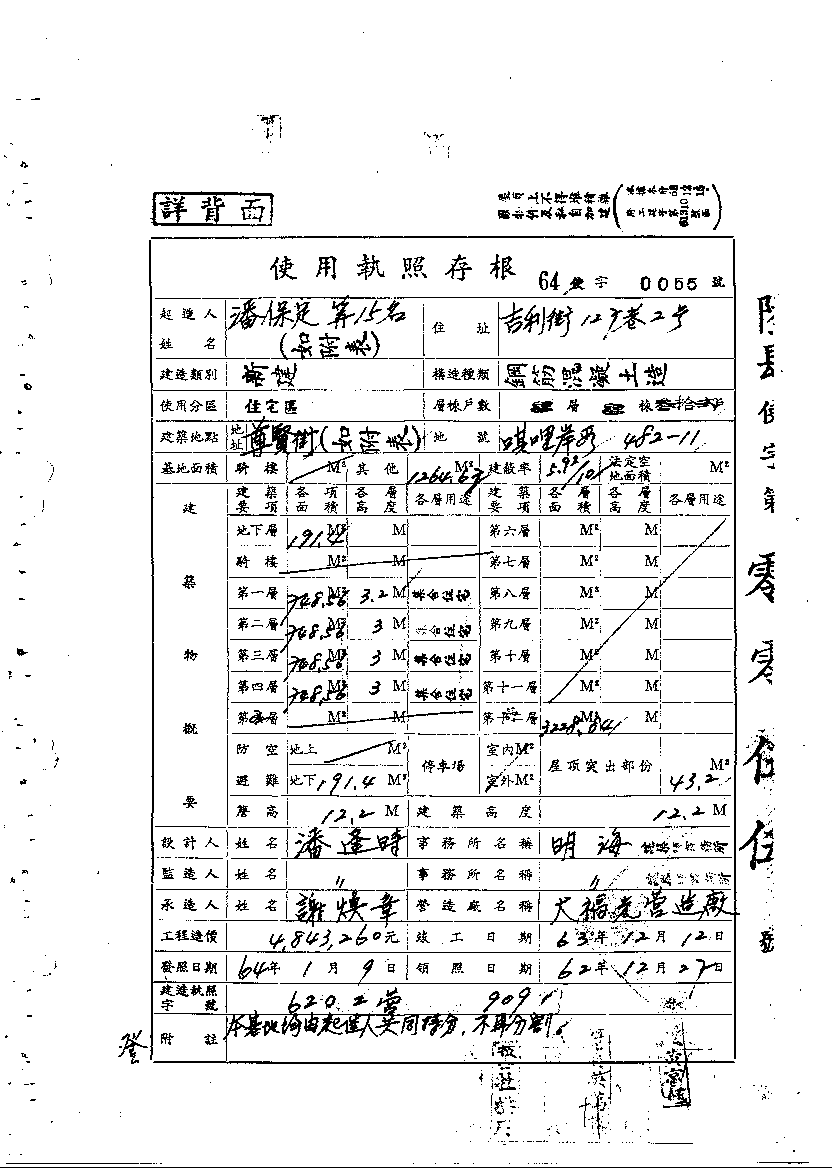 詳背面
使用執照存根 64 使字 0055 號
起造人姓名 潘保定等15名(如附表) 住址 吉利街127巷2号
建造類別 新建 構造種類 鋼筋混凝土造
使用分區 住宅區 層棟戶數 層 棟
建築地點 地址 尊賢街(如附表) 地號 唭哩岸段 482-11
基地面積 騎樓 M² 其他 1264.63 M² 建蔽率 5.92/10 法定空地面積 M²
建築物概要 建築要項 各項面積 各層高度 各層用途 建築要項 各層面積 各層高度 各層用途
地下層 191.4 M² M 第六層 M² M
騎樓 M² M 第七層 M² M
第一層 748.56 M² 3.2 M 集合住宅 第八層 M² M
第二層 748.56 M² 3 M 集合住宅 第九層 M² M
第三層 748.56 M² 3 M 集合住宅 第十層 M² M
第四層 748.56 M² 3 M 集合住宅 第十一層 M² M
層 M² M 層 3228.641 M² M
防空避難 地上 M² 停車場 室內 M² 屋頂突出部份 M²
地下 191.4 M² 室外 M² 43.2
簷高 12.2 M 建築高度 12.2 M
設計人 姓名 潘逢時 事務所名稱 明海
監造人 姓名 〃 事務所名稱 〃
承造人 姓名 謝煥章 營造廠名稱 大福光營造廠
工程造價 4,843,260元 竣工日期 63年12月12日
發照日期 64年1月9日 領照日期 62年12月27日
建造執照字號 620 工營 909
附註 本基地均由起造人共同持分，不再分割。
登
使字第零零伍伍號